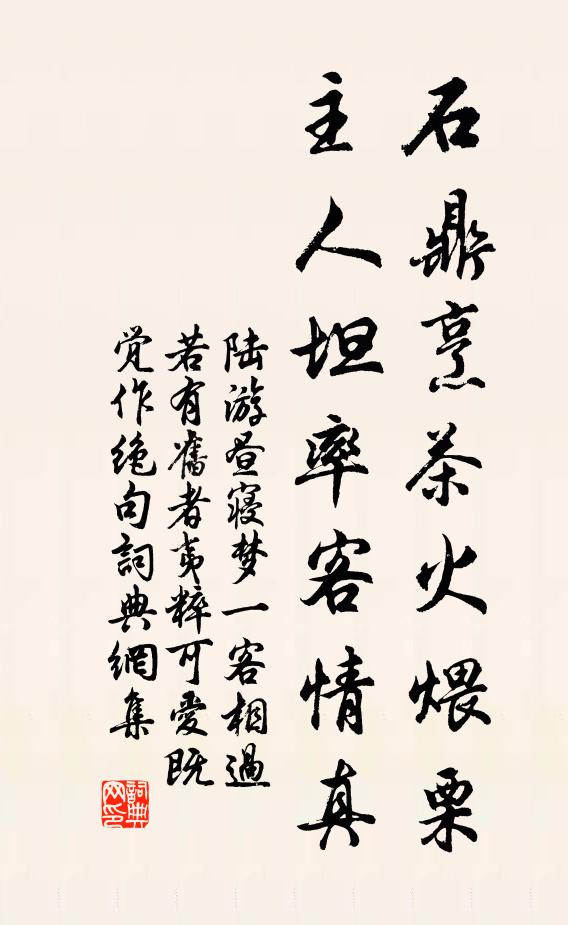 石鼎烹茶火煨栗
主人坦率客情真
陆游昼寝梦一客相過
若有舊者夷粹可愛既
觉作绝句詞典網集
詞典网印